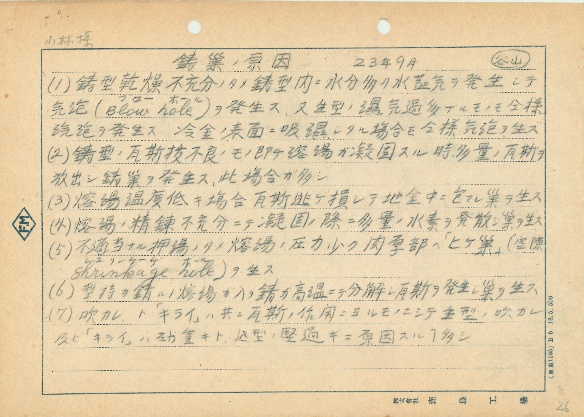 小林様
鋳巣ノ原因 23年9月 谷山
(1) 鋳型乾燥不充分ノタメ鋳型内ニ水分多ク水蒸気ヲ発生シテ
気泡(Blow hole)ヲ発生ス 又生型ノ濕気過多ナルモノモ仝様
気泡ヲ発生ス 冷金ノ表面ニ吸濕シタル場合モ仝様気泡ヲ生ス
(2) 鋳型ノ瓦斯抜不良ノモノ即ケ熔湯ガ凝固スル時、多量ノ瓦斯ヲ
放出シ鋳巣ヲ発生ス、此場合ガ多シ
(3) 熔湯温度低キ場合瓦斯逃ゲ損シテ地金中ニ包マレ巣ヲ生ス
(4) 熔湯ノ精錬不充分ニテ凝固ノ際ニ多量ノ水素ヲ発散シ巣ヲ生ス
(5) 不適当ナル押湯ノタメ熔湯ノ圧力少ク肉厚部ヘ「ヒケ巣」(空隙
shrinkage hole)ヲ生ス
(6) 型持ガ錆ルト熔湯ガ入リ錆ガ高温ニテ分解シ瓦斯ヲ発生シ巣ヲ生ス
(7) 吹カレ ト キライ ハ共ニ瓦斯ノ作用ニヨルモノニシテ生型ノ吹カレ
及ビ「キライ」ハ ガ原因スルヿ多シ
FM
株式会社 工場
26